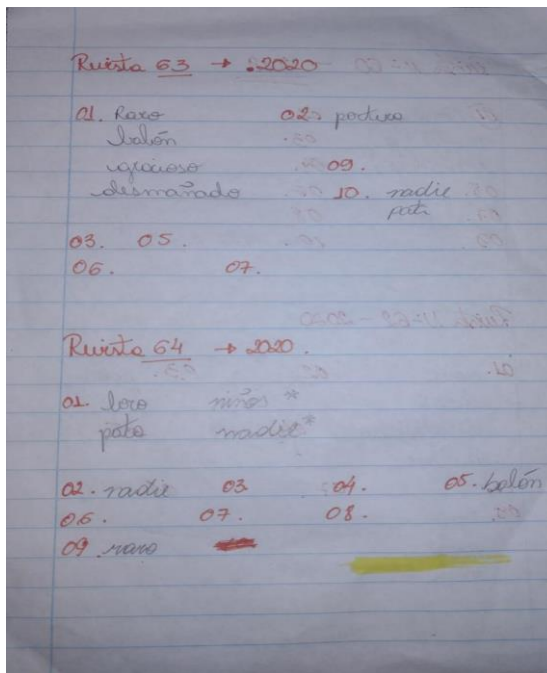 Revista 63 → 2020
01. Raro 02. postura
balón
igracioso 09.
desmañado 10. nadie
pato
03. 05.
06. 07.
Revista 64 → 2020.
01. loro niños *
pato nadie *
02. nadie 03 04. 05. balón
06. 07. 08.
09. raro